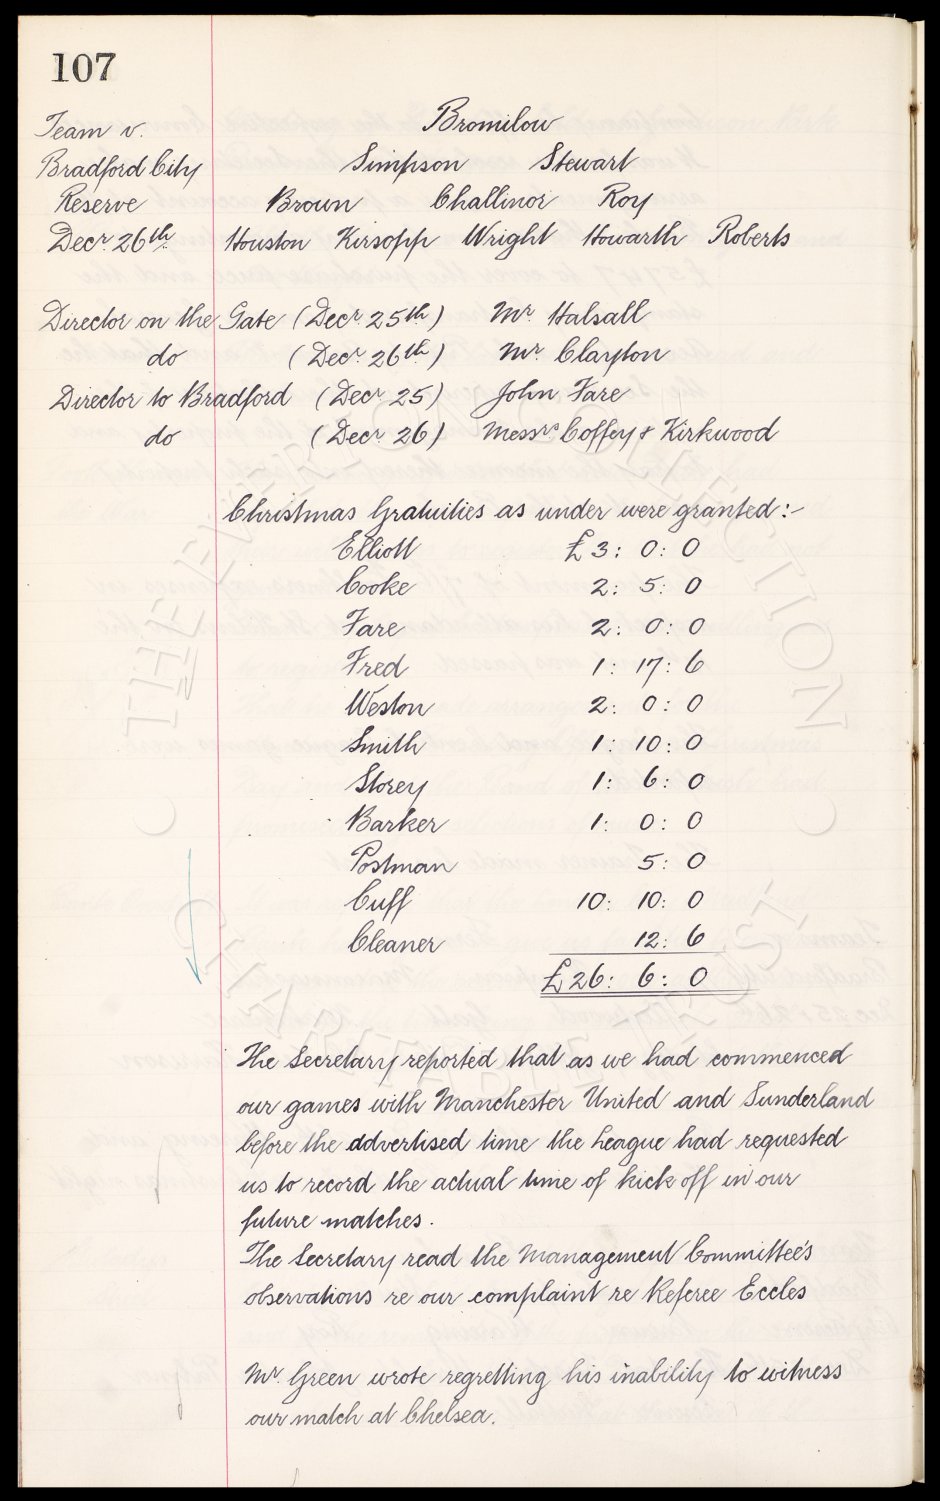 107
Team v. Bromilow
Bradford City Simpson Stewart
Reserve Brown Challinor Roy
Decr 26th Houston Kirsopp Wright Howarth Roberts
Director on the Gate (Decr 25th) Mr Halsall
do (Decr 26th) Mr Clayton
Director to Bradford (Decr 25) John Fare
do (Decr 26) Messrs Coffey & Kirkwood
Christmas Gratuities as under were granted:-
Elliott £3: 0: 0
Cooke 2: 5: 0
Fare 2: 0: 0
Fred 1: 17: 6
Weston 2: 0: 0
Smith 1: 10: 0
Storey 1: 6: 0
Barker 1: 0: 0
Postman 5: 0
Cuff 10: 10: 0
Cleaner 12: 6
£26: 6: 0
The Secretary reported that as we had commenced
our games with Manchester United and Sunderland
before the advertised time the League had requested
us to record the actual time of kick off in our
future matches.
The Secretary read the Management Committee's
observations re our complaint re Referee Eccles
Mr. Green wrote regretting his inability to witness
our match at Chelsea.
THE EVERTON COLLECTION
CHARITABLE TRUST